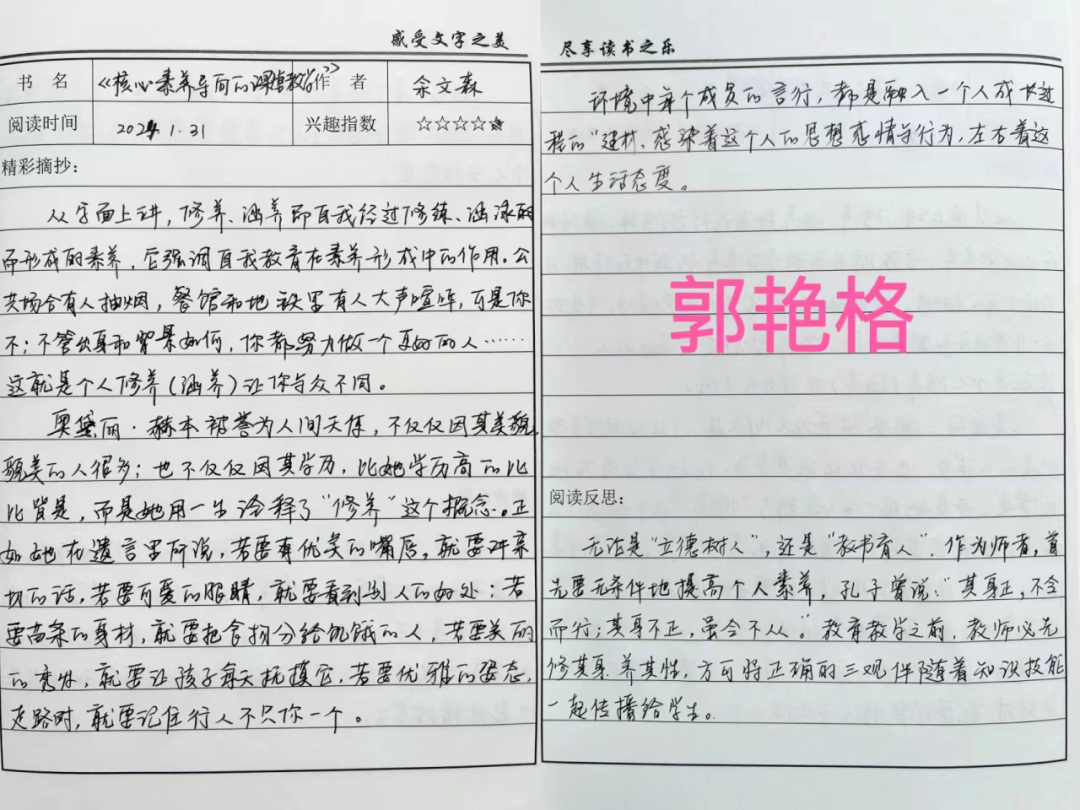 感受文字之美
书 名 《核心素养导向的课堂教学》 作 者 余文森
阅读时间 2024 1.31 兴趣指数 ☆☆☆☆☆
精彩摘抄:
从字面上讲，修养、涵养即自我经过修练、涵泳的
而形成的素养，它强调自我教育在素养形成中的作用。公
共场合有人抽烟，餐馆和地铁里有人大声喧哗，可是你
不；不管出身和背景如何，你都努力做一个更好的人……
这就是个人修养(涵养)让你与众不同。
奥黛丽·赫本被誉为人间天使，不仅仅因其美貌，
貌美的人很多；也不仅仅因其学历，比她学历高的比
比皆是，而是她用一生诠释了“修养”这个概念。正
如她在遗言里所说，若要有优美的嘴唇，就要讲亲
切的话，若要可爱的眼睛，就要看到别人的好处；若
要苗条的身材，就要把食物分给饥饿的人，若要美丽
的秀发，就要让孩子每天抚摸它，若要优雅的姿态，
走路时，就要记住行人不只你一个。
尽享读书之乐
环境中每个成员的言行，都是融入一个人成长过
程的“建材，感染着这个人的思想感情与行为，左右着这
个人生活态度。
郭艳格
阅读反思:
无论是“立德树人”，还是“教书育人”，作为师者，首
先要无条件地提高个人素养，孔子曾说：“其身正，不令
而行；其身不正，虽令不从。”教育教学之前，教师必先
修其身养其性，方可将正确的三观伴随着知识技能
一起传播给学生。